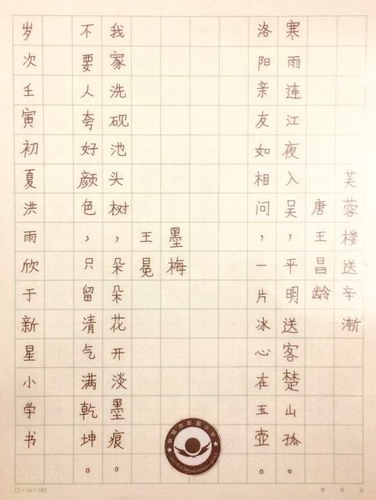 芙蓉楼送辛渐
唐王昌龄
寒雨连江夜入吴，平明送客楚山孤。
洛阳亲友如相问，一片冰心在玉壶。
墨梅
王冕
我家洗砚池头树，朵朵花开淡墨痕。
不要人夸好颜色，只留清气满乾坤。
岁次壬寅初夏洪雨欣于新星小学书